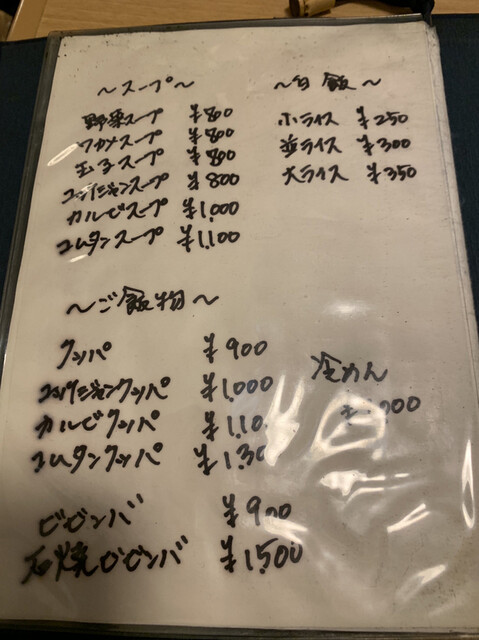 〜スープ〜
野菜スープ ¥800
ワカメスープ ¥800
玉子スープ ¥800
コッパジャンスープ ¥800
カルビスープ ¥1,000
コムタンスープ ¥1,100
〜白飯〜
小ライス ¥250
並ライス ¥300
大ライス ¥350
〜ご飯物〜
クッパ ¥900
コッパジャンクッパ ¥1,000
カルビクッパ ¥1,10
コムタンクッパ ¥1,30
ビビンバ ¥900
石焼ビビンバ ¥1,500
冷めん